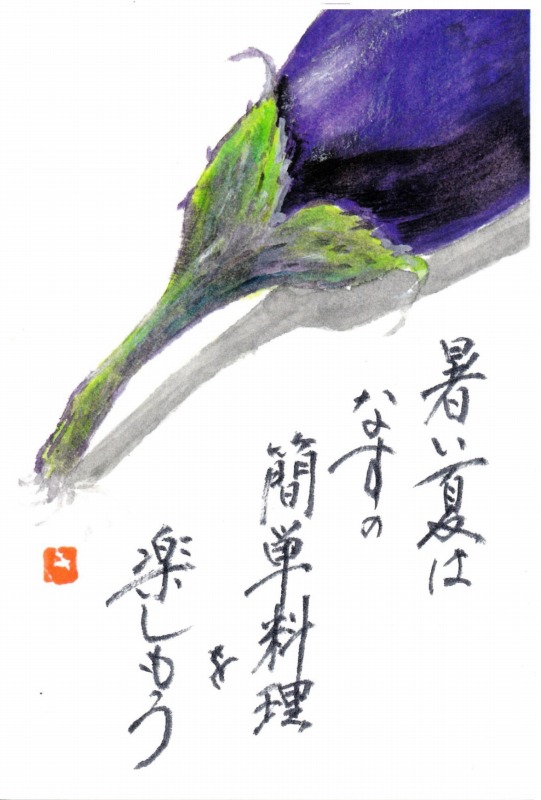 暑い夏は
なすの
簡単料理
を
楽しもう